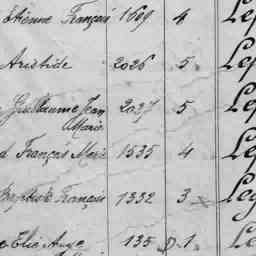 Etienne Français 1609 4 Le
Aristide 2026 5 Le
Guillaume Jean 2027 5 Le
Marie
d François Marie 1535 4 Le
Baptiste Français 1332 3 Leg
e Elie Ange 135 1 Le